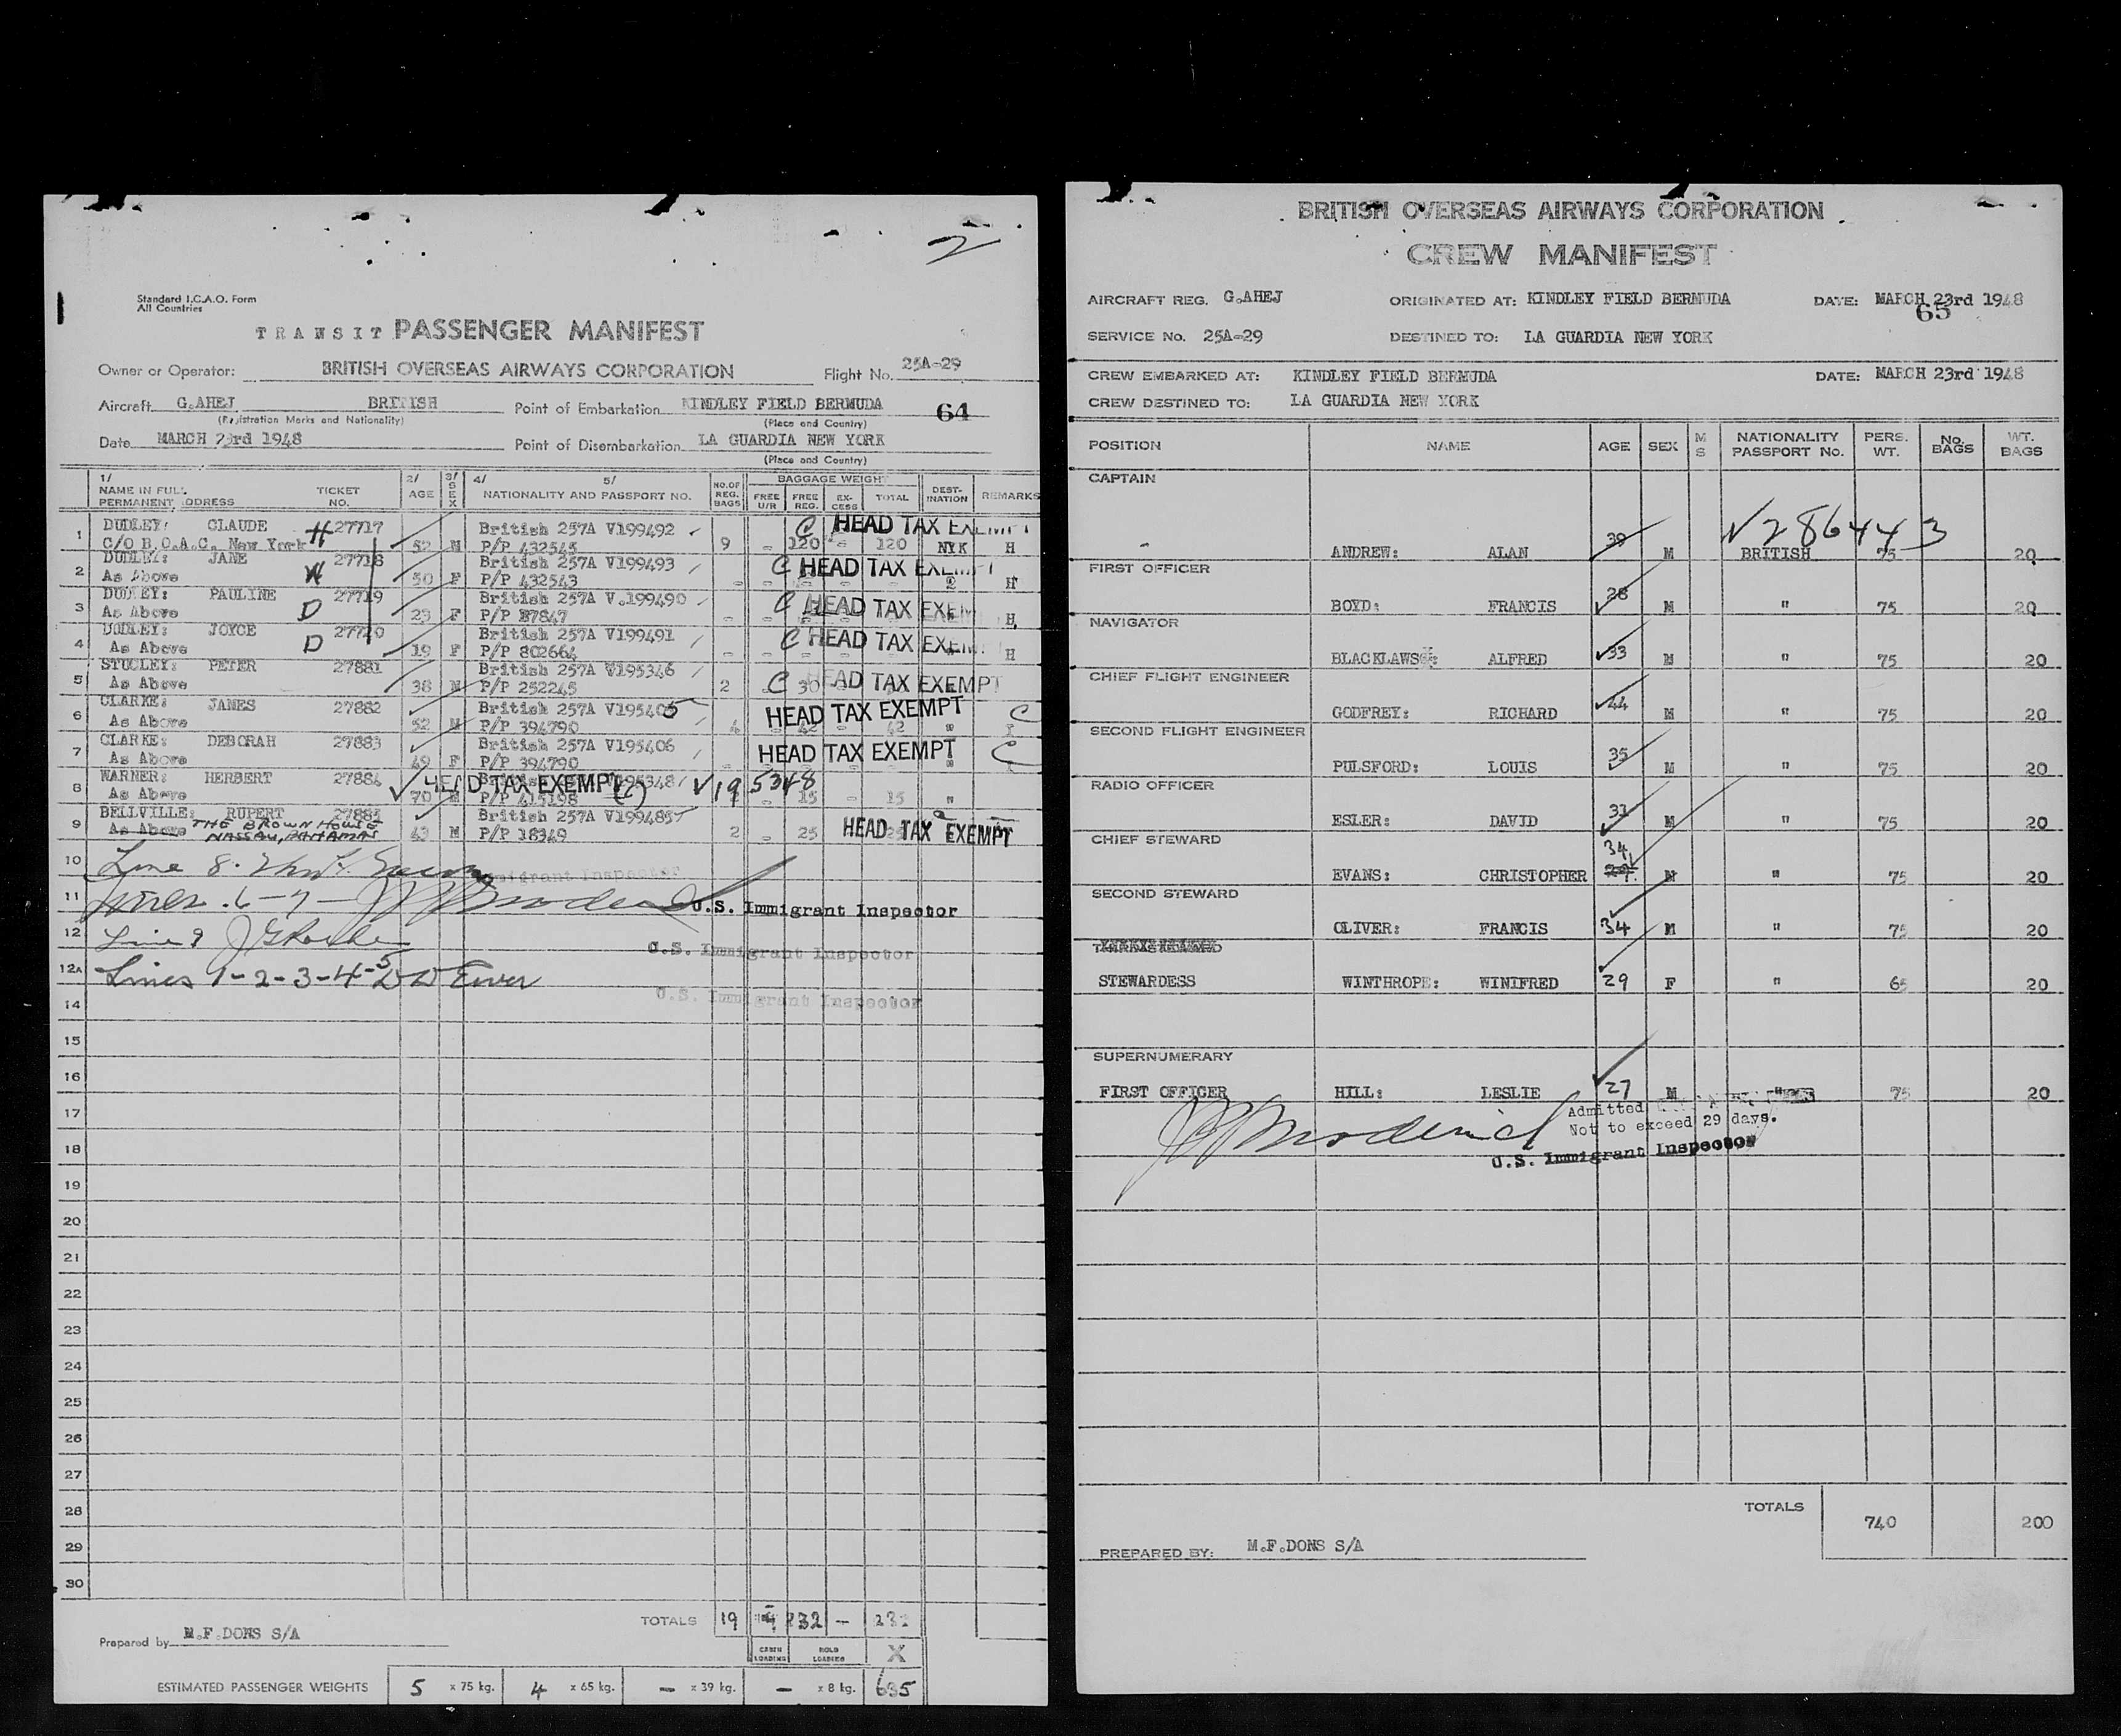 2
Standard I.C.A.O. Form
All Countries
TRANSIT PASSENGER MANIFEST
Owner or Operator: BRITISH OVERSEAS AIRWAYS CORPORATION Flight No. 25A-29
Aircraft G.AHEJ BRITISH Point of Embarkation KINDLEY FIELD BERMUDA 64
(Registration Marks and Nationality) (Place and Country)
Date MARCH 23rd 1948 Point of Disembarkation LA GUARDIA NEW YORK
(Place and Country)
1/ NAME IN FULL PERMANENT ADDRESS TICKET NO. 2/ AGE 3/ SEX 4/ 5/ NATIONALITY AND PASSPORT NO. NO.OF REG. BAGS BAGGAGE WEIGHT FREE U/R FREE REG. EX-CESS TOTAL DEST-INATION REMARKS
1 DUDLEY: CLAUDE H 27717 British 257A V199492 C HEAD TAX EXEMPT
C/O B.O.A.C. New York 52 M P/P 432545 9 - 120 - 120 NYK H
2 DUDLEY: JANE W 27718 British 257A V199493 C HEAD TAX EXEMPT
As Above 50 F P/P 432543 - - - - " H
3 DUDLEY: PAULINE D 27719 British 257A V.199490 C HEAD TAX EXEM
As Above 23 F P/P B7847 - - H
4 DUDLEY: JOYCE D 27720 British 257A V199491 C HEAD TAX EXEM
As Above 19 F P/P 802664 - - H
5 STUCLEY: PETER 27881 British 257A V195346
As Above 38 M P/P 252245 2 C 30 HEAD TAX EXEMPT
6 CLARKE: JAMES 27882 British 257A V195405 HEAD TAX EXEMPT C
As Above 52 M P/P 394790 4 - 42 - 42 "
7 CLARKE: DEBORAH 27883 British 257A V195406 HEAD TAX EXEMPT C
As Above 49 F P/P 394790 - "
8 WARNER: HERBERT 27884 HEAD TAX EXEMPT V195348 V195348
As Above 70 M P/P 415198 - 15 - 15 "
9 BELLVILLE: RUPERT 27885 British 257A V199485
As Above THE BROWN HOUSE NASSAU, BAHAMAS 43 M P/P 18349 2 - 25 HEAD TAX EXEMPT
10 Line 8.
11 Lines 6-7 - U.S. Immigrant Inspector
12 Line 9 U.S. Immigrant Inspector
12A Lines 1-2-3-4-5
14 U.S. Immigrant Inspector
15
16
17
18
19
20
21
22
23
24
25
26
27
28
29
30
TOTALS 19 232 - 232
Prepared by M.F.DONS S/A CABIN LOADING HOLD LOADING X
ESTIMATED PASSENGER WEIGHTS 5 x 75 kg. 4 x 65 kg. - x 39 kg. - x 8 kg. 635
BRITISH OVERSEAS AIRWAYS CORPORATION
CREW MANIFEST
AIRCRAFT REG. G.AHEJ ORIGINATED AT: KINDLEY FIELD BERMUDA DATE: MARCH 23rd 1948
65
SERVICE No. 25A-29 DESTINED TO: LA GUARDIA NEW YORK
CREW EMBARKED AT: KINDLEY FIELD BERMUDA DATE: MARCH 23rd 1948
CREW DESTINED TO: LA GUARDIA NEW YORK
POSITION NAME AGE SEX M S NATIONALITY PASSPORT No. PERS. WT. No. BAGS WT. BAGS
CAPTAIN
V286443
ANDREW: ALAN 39 M BRITISH 75 20
FIRST OFFICER
BOYD: FRANCIS 28 M " 75 20
NAVIGATOR
BLACKLAWS: ALFRED 33 M " 75 20
CHIEF FLIGHT ENGINEER
GODFREY: RICHARD 44 M " 75 20
SECOND FLIGHT ENGINEER
PULSFORD: LOUIS 35 M " 75 20
RADIO OFFICER
ESLER: DAVID 31 M " 75 20
CHIEF STEWARD
34
EVANS: CHRISTOPHER M " 75 20
SECOND STEWARD
OLIVER: FRANCIS 34 M " 75 20
STEWARDESS WINTHROPE: WINIFRED 29 F " 65 20
SUPERNUMERARY
FIRST OFFICER HILL: LESLIE 27 M " 75 20
Admitted
Not to exceed 29 days.
U.S. Immigrant Inspector
TOTALS 740 200
PREPARED BY: M.F.DONS S/A